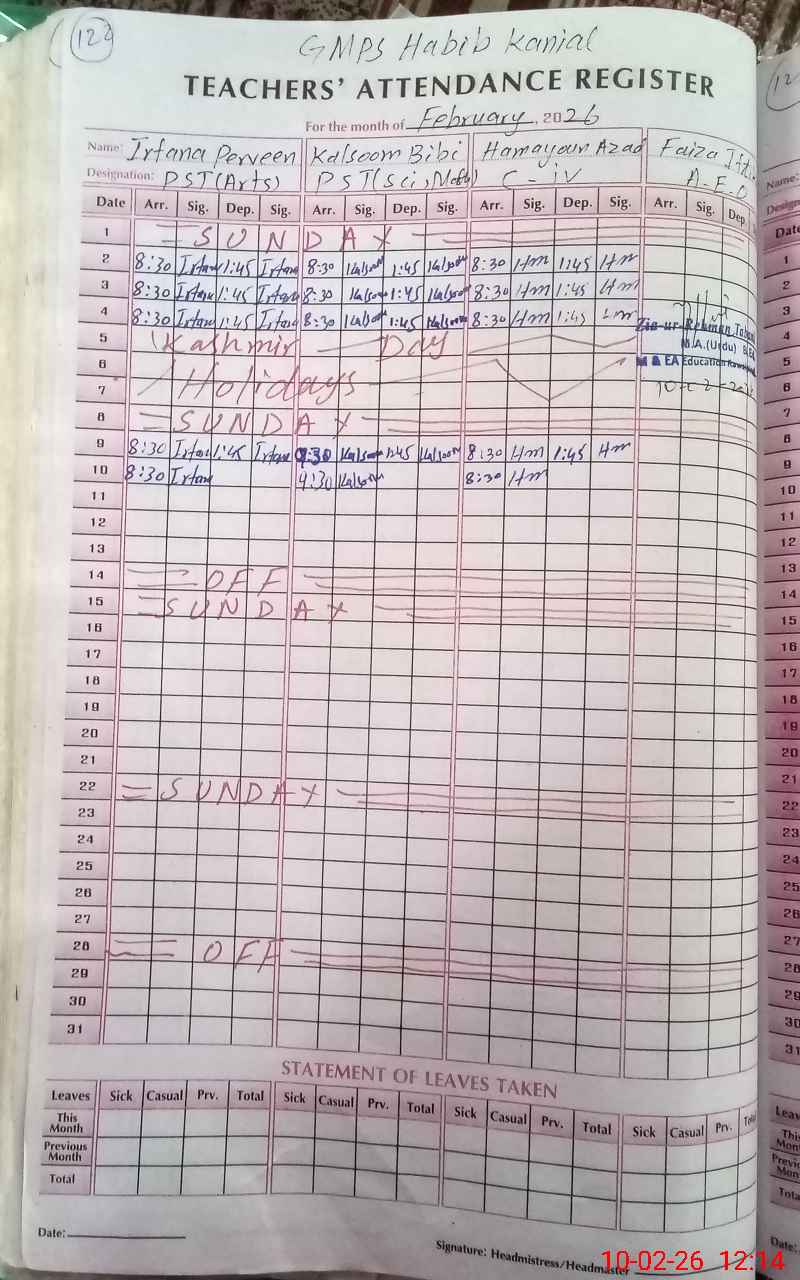 129
GMPS Habib Kanial
TEACHERS' ATTENDANCE REGISTER
For the month of February, 2026
Name: Irfana Perveen Kalsoom Bibi Hamayoun Azad Faiza
Designation: PST(Arts) PST(Sci, Math) C-iV A-E-O
Date Arr. Sig. Dep. Sig. Arr. Sig. Dep. Sig. Arr. Sig. Dep. Sig. Arr. Sig. Dep.
1 SUNDAY
2 8:30 Irfana 1:45 Irfana 8:30 Kalsoom 1:45 Kalsoom 8:30 Hm 1:45 Hm
3 8:30 Irfana 1:45 Irfana 8:30 Kalsoom 1:45 Kalsoom 8:30 Hm 1:45 Hm
4 8:30 Irfana 1:45 Irfana 8:30 Kalsoom 1:45 Kalsoom 8:30 Hm 1:45 Hm
Zia-ur-Rehman
M.A.(Urdu)
5 Kashmir Day
EA Education
6
7 Holidays
8 SUNDAY
9 8:30 Irfana 1:45 Irfana 9:30 Kalsoom 1:45 Kalsoom 8:30 Hm 1:45 Hm
10 8:30 Irfana 9:30 Kalsoom 8:30 Hm
11
12
13
14 OFF
15 SUNDAY
16
17
18
19
20
21
22 SUNDAY
23
24
25
26
27
28 OFF
29
30
31
STATEMENT OF LEAVES TAKEN
Leaves Sick Casual Prv. Total Sick Casual Prv. Total Sick Casual Prv. Total Sick Casual Prv.
This Month
Previous Month
Total
Date:
Signature: Headmistress/Headmaster
10-02-26 12:14